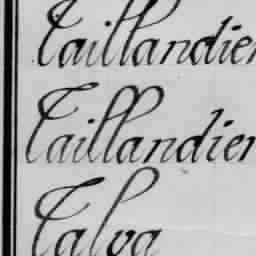 Taillandier
Taillandier
Talva